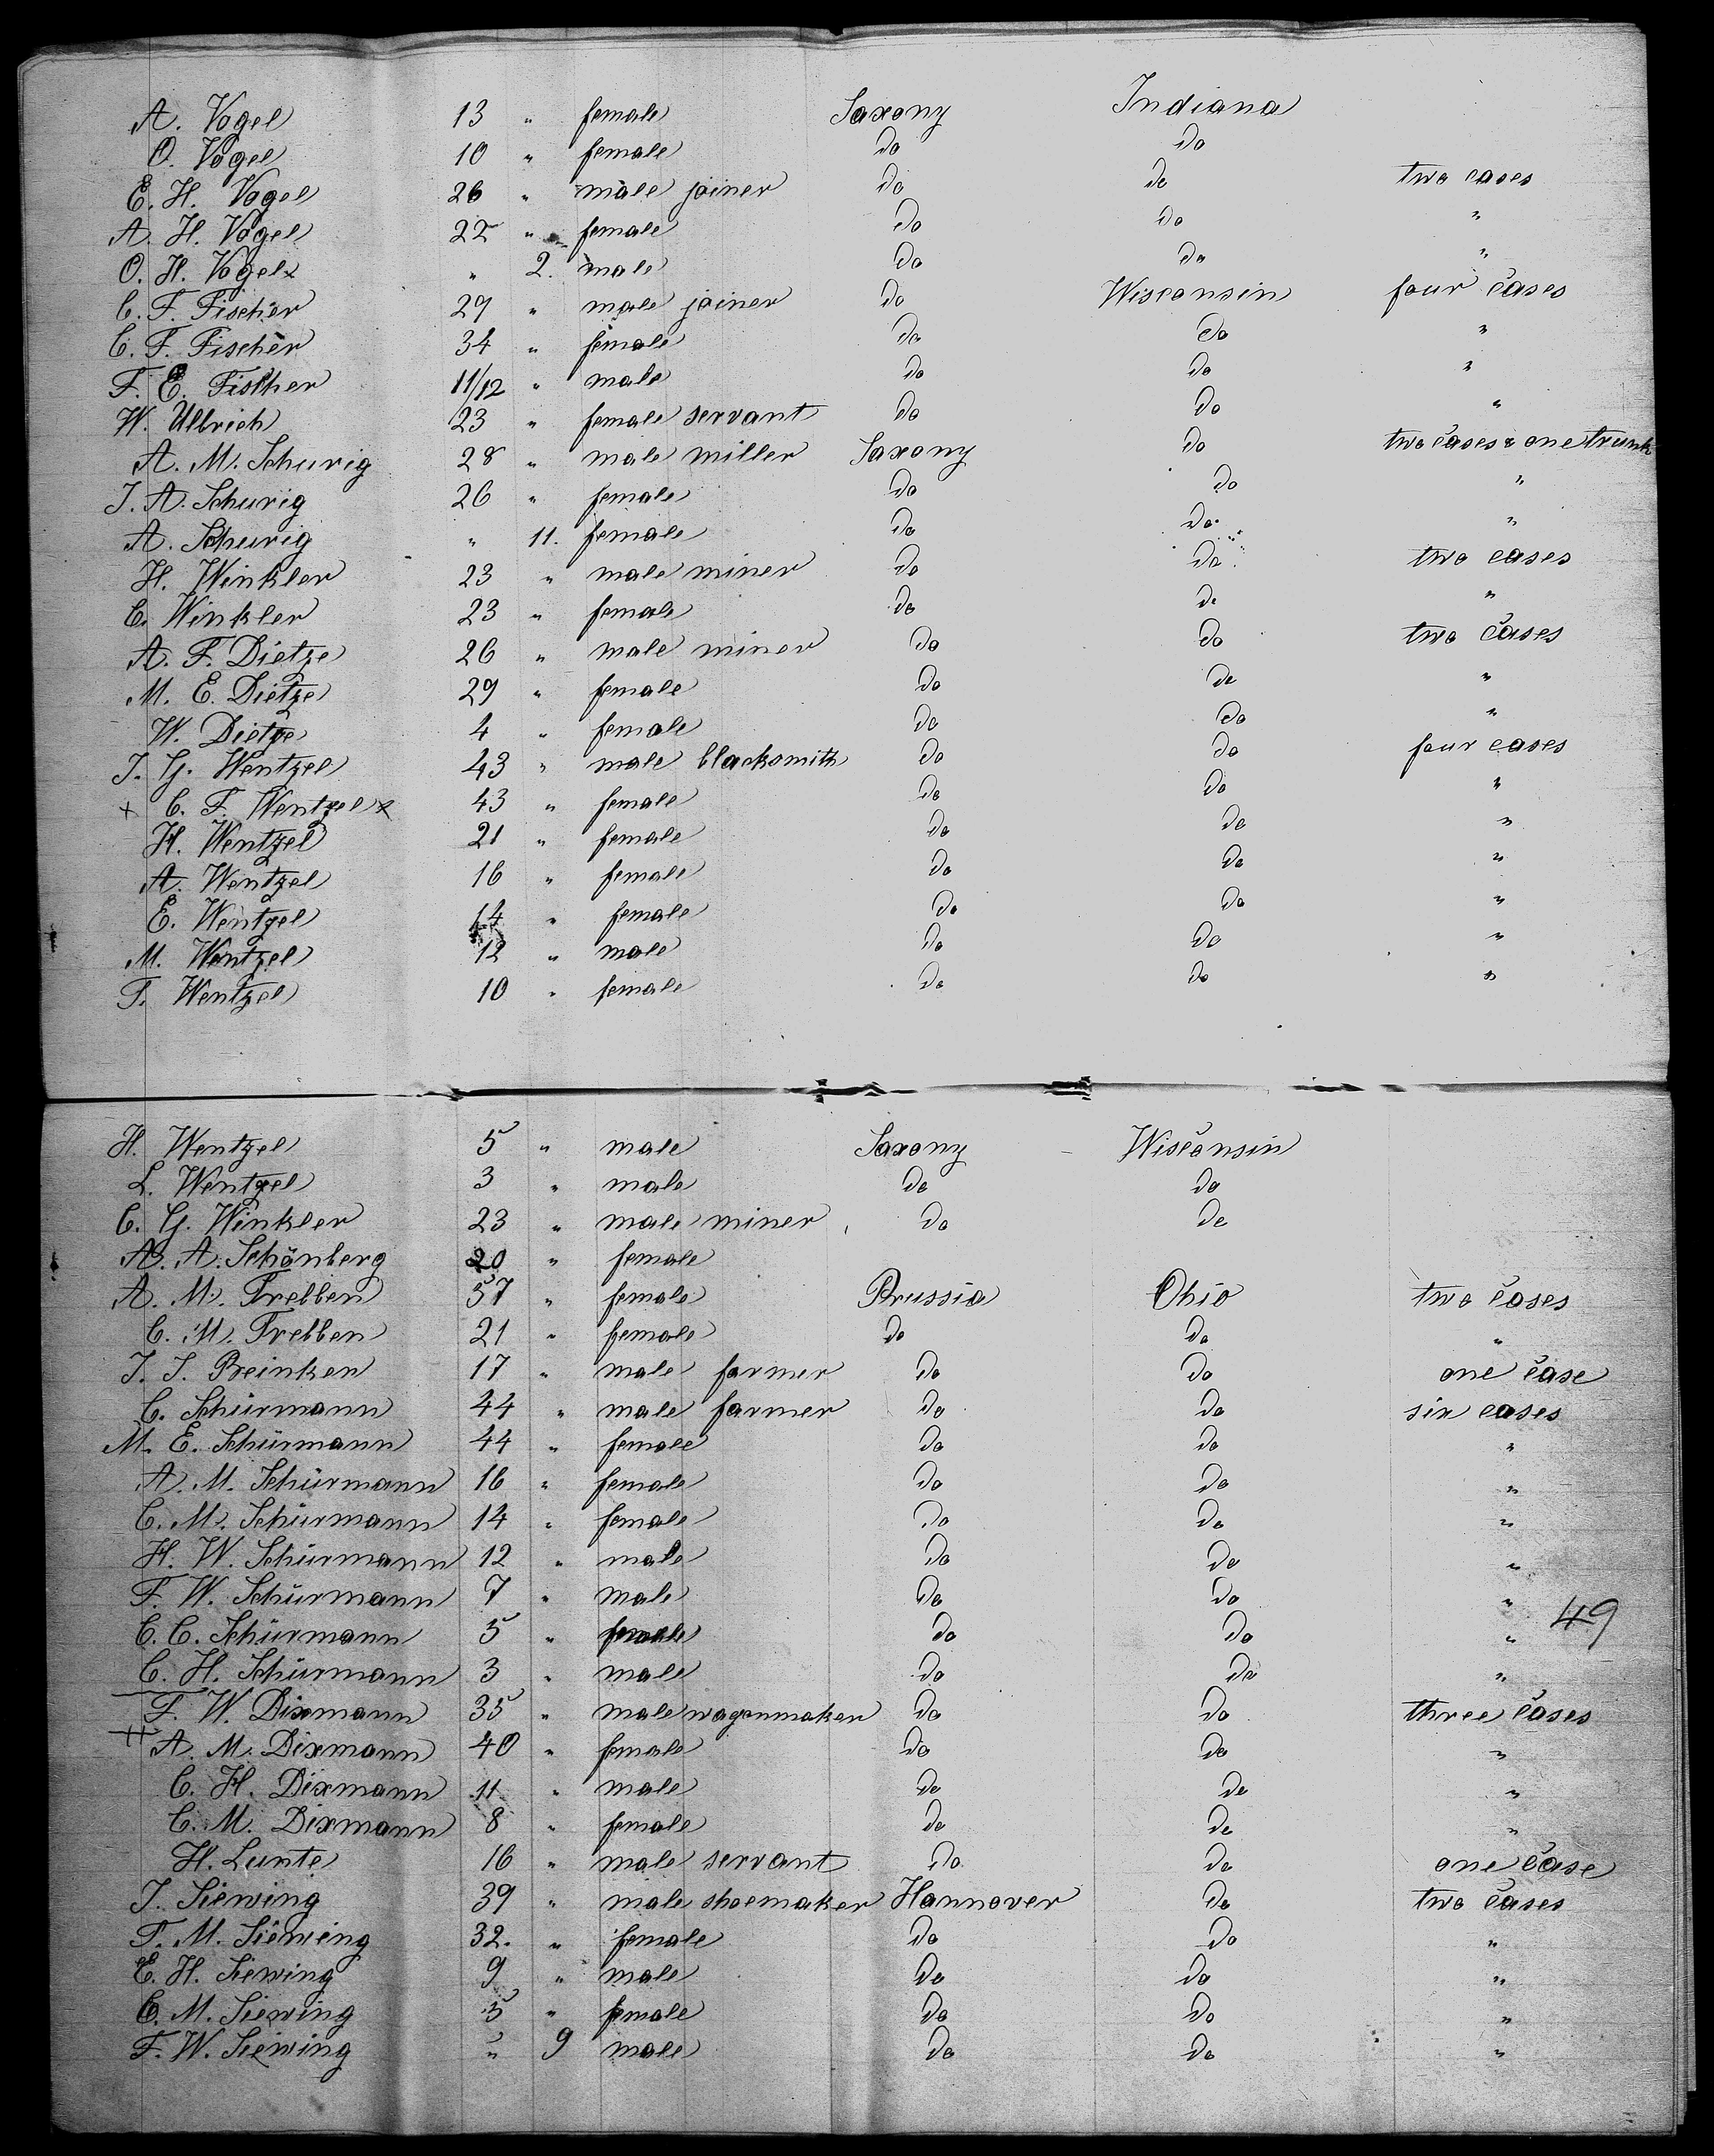 A. Vogel 13 " female Saxony Indiana
O. Vogel 10 " female do do
E. H. Vogel 26 " male joiner do do two cases
A. H. Vogel 22 " female do do "
O. H. Vogel x " 2. male do do "
C. F. Fischer 29 " male joiner do Wisconsin four cases
C. F. Fischer 34 " female do do "
F. E. Fischer 11/12 " male do do "
W. Ulbrich 23 " female servant do do "
A. M. Schurig 28 " male miller Saxony do two cases & one trunk
J. A. Schurig 26 " female do do "
A. Schurig " 11. female do do "
H. Winkler 23 " male miner do do two cases
C. Winkler 23 " female do do "
A. F. Dietze 26 " male miner do do two cases
M. E. Dietze 29 " female do do "
W. Dietze 4 " female do do "
J. G. Wentzel 43 " male blacksmith do do four cases
+ C. F. Wentzel x 43 " female do do "
H. Wentzel 21 " female do do "
A. Wentzel 16 " female do do "
E. Wentzel 14 " female do do "
M. Wentzel 12 " male do do "
F. Wentzel 10 " female do do "
H. Wentzel 5 " male Saxony Wisconsin
L. Wentzel 3 " male do do
C. G. Winkler 23 " male miner do do
A. A. Schönberg 20 " female
A. M. Trebben 57 " female Prussia Ohio two cases
C. M. Trebben 21 " female do do "
J. J. Beinken 17 " male farmer do do one case
C. Schürmann 44 " male farmer do do six cases
M. E. Schürmann 44 " female do do "
A. M. Schürmann 16 " female do do "
C. M. Schürmann 14 " female do do "
H. W. Schürmann 12 " male do do "
F. W. Schürmann 7 " male do do "
49
C. C. Schürmann 5 " female do do "
C. H. Schürmann 3 " male do do "
F. W. Dixmann 35 " male wagonmaker do do three cases
A. M. Dixmann 40 " female do do "
C. H. Dixmann 11 " male do do "
C. M. Dixmann 8 " female do do "
H. Lunte 16 " male servant do do one case
J. Siewing 39 " male shoemaker Hannover do two cases
F. M. Siewing 32. " female do do "
E. H. Siewing 9 " male do do "
C. M. Siewing 5 " female do do "
F. W. Siewing " 9 male do do "